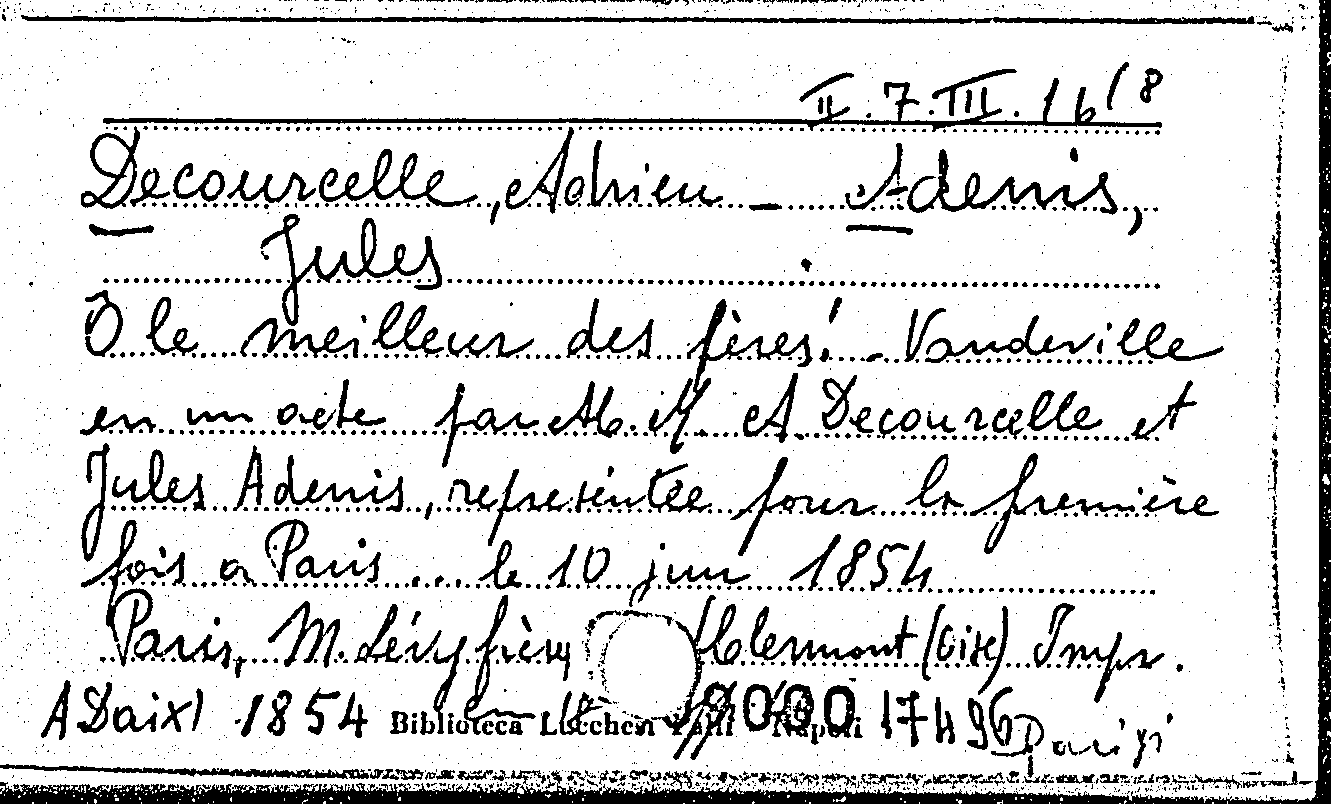 II.7.III.16/8
Decourcelle, Adrien - Adenis,
Jules
Ô le meilleur des fères! - Vaudeville
en un acte par M. M. A. Decourcelle et
Jules Adenis, représentée pour la première
fois a Paris ... le 10 juin 1854
Paris, M. Lévy frères Clermont (Oise) Impr.
A Daix) 1854 Biblioteca Lucchesi Palli Napoli 17496 Parigi